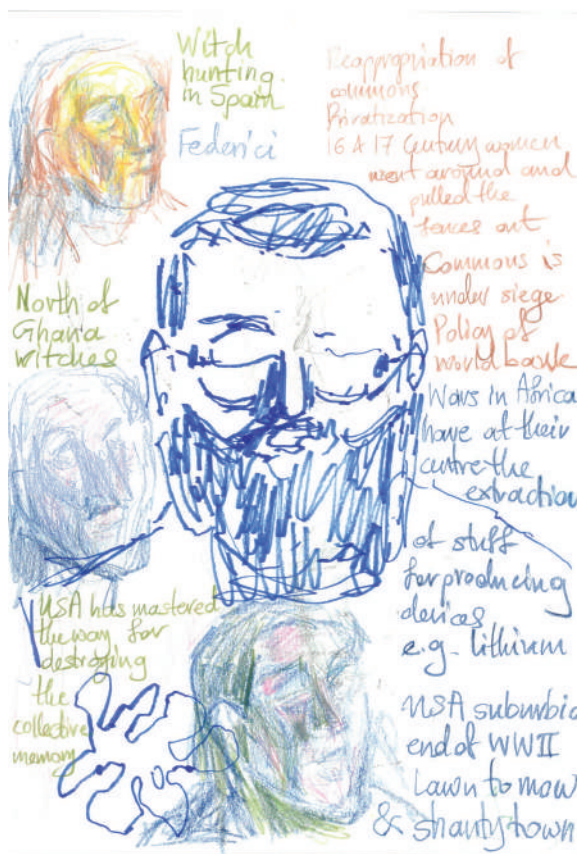 Witch
hunting
in Spain
Federici
Reappropriation of
commons
Privatization
16 & 17 Century women
went around and
pulled the
fences out
Commons is
under siege
Policy of
world bank
North of
Ghana
witches
Wars in Africa
have at their
centre the
extraction
of stuff
for producing
devices
e.g. lithium
USA has mastered
the way for
destroying
the
collective
memory
USA suburbia
end of WWII
Lawn to mow
& shanty town